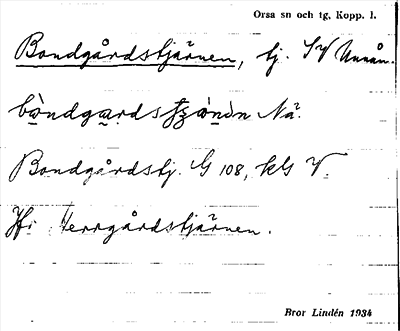 Orsa sn och tg, Kopp. l.
Bondgårdstjärnen, tj. SV Unnån.
Nä.
Bondgårdstj. G 108, kG V.
Jfr Herrgårdstjärnen.
Bror Lindén 1934